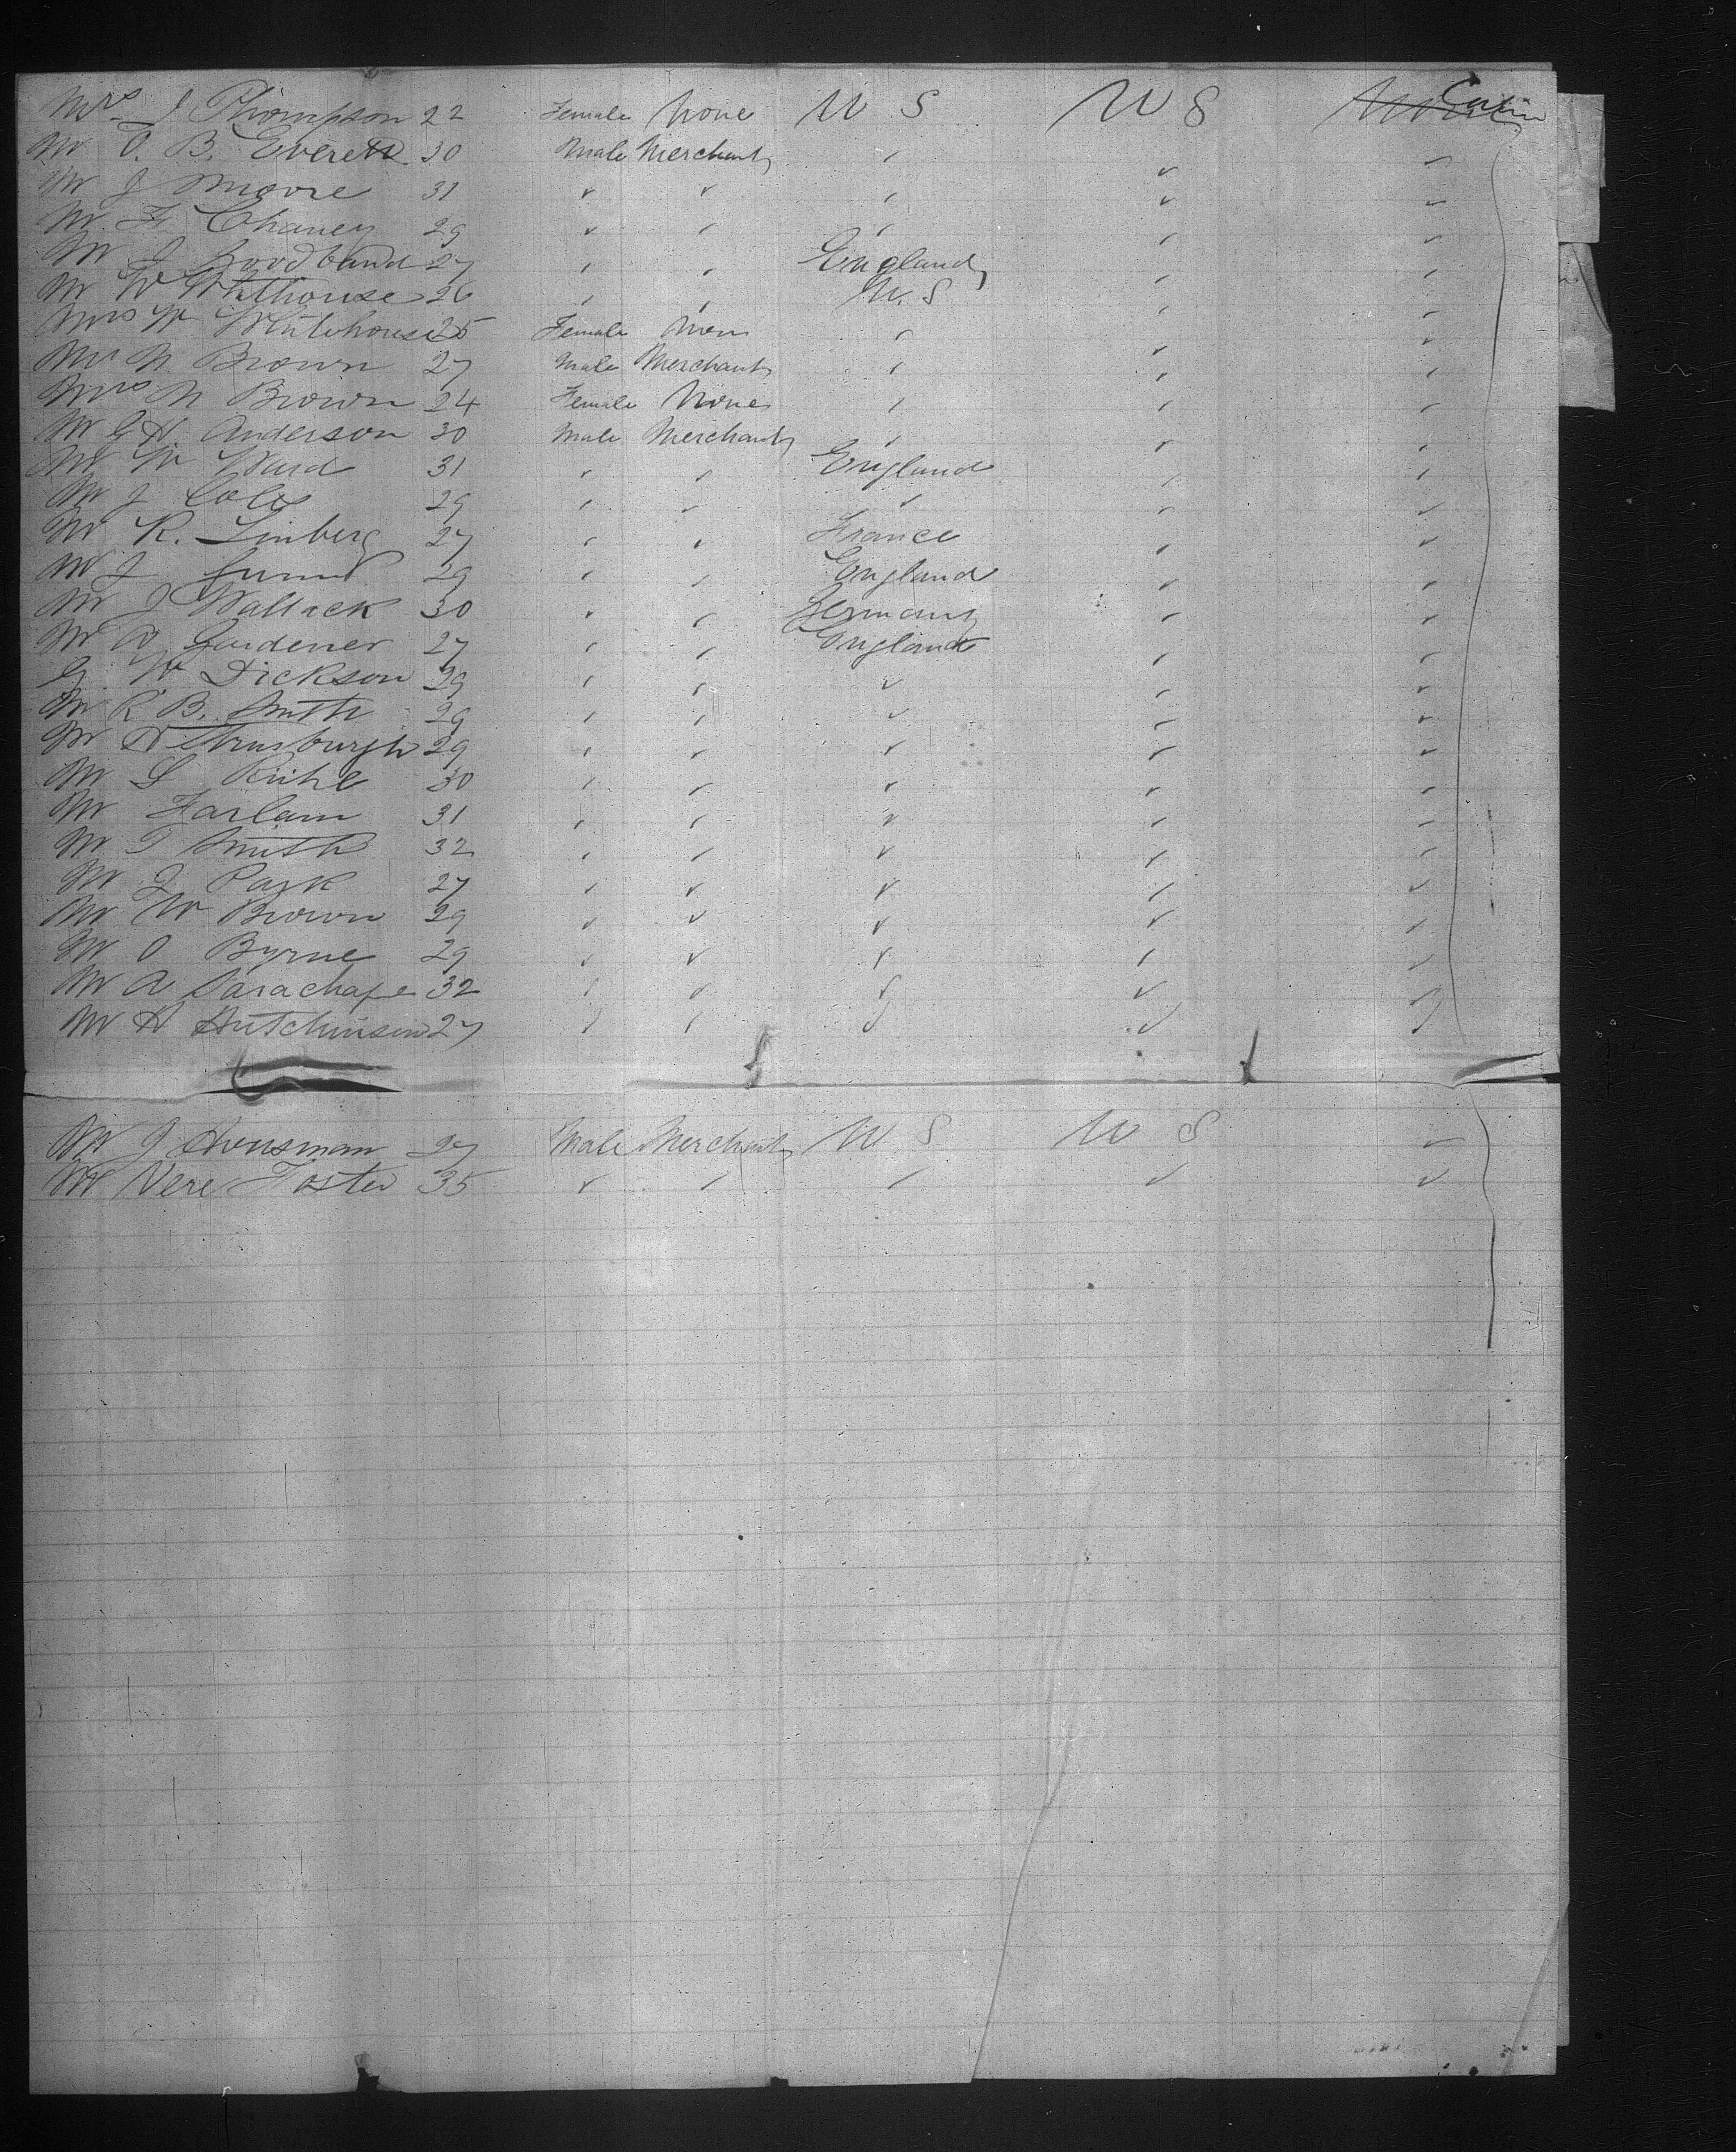 Mrs J Thompson 22 Female None U S U S Cabin
Mr O. B. Everett 30 Male Merchant
Mr J Moore 31
Mr F Chaney 29
Mr J Goodband 27 England
Mr W Whithouse 26 U.S
Mrs W Whitehouse 25 Female None
Mr N Brown 27 Male Merchant
Mrs N Brown 24 Female None
Mr G H Anderson 30 Male Merchant
Mr W Ward 31 England
Mr J Cole 29
Mr R. Linberg 27 France
Mr J 29 England
Mr J Wallack 30 Germany
Mr A Gardener 27 England
G W Dickson 29
Mr R B. Smith 29
Mr 29
Mr L 30
Mr Farlam 31
Mr T Smith 32
Mr J Park 27
Mr W Brown 29
Mr O Byrne 29
Mr A 32
Mr H Hutchinson 27
Mr J Housman 27 Male Merchant U S U S
Mr Vere Foster 35